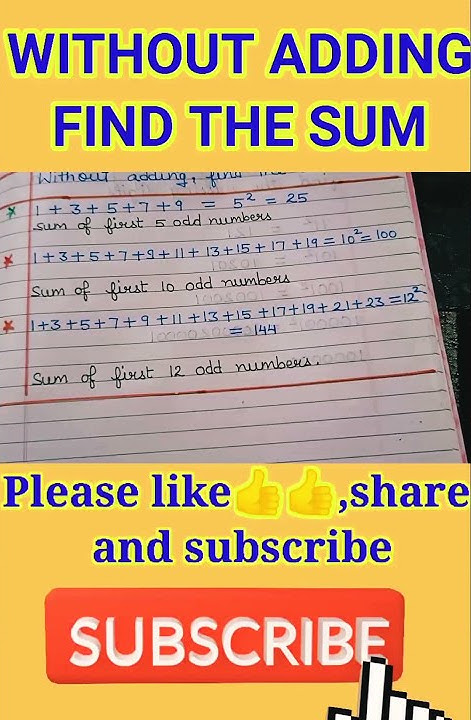 WITHOUT ADDING
FIND THE SUM
Without adding, find the
1 + 3 + 5 + 7 + 9 = 5² = 25
Sum of first 5 odd numbers
1+3+5+7+9+11+13+15+17+19 = 10² = 100
Sum of first 10 odd numbers
1+3+5+7+9+11+13+15+17+19+21+23 = 12²
= 144
Sum of first 12 odd numbers.
Please like👍👍,share
and subscribe
SUBSCRIBE